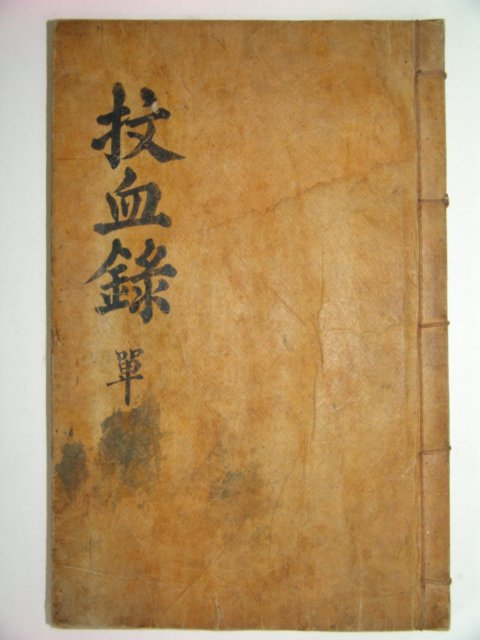 抆血錄 單